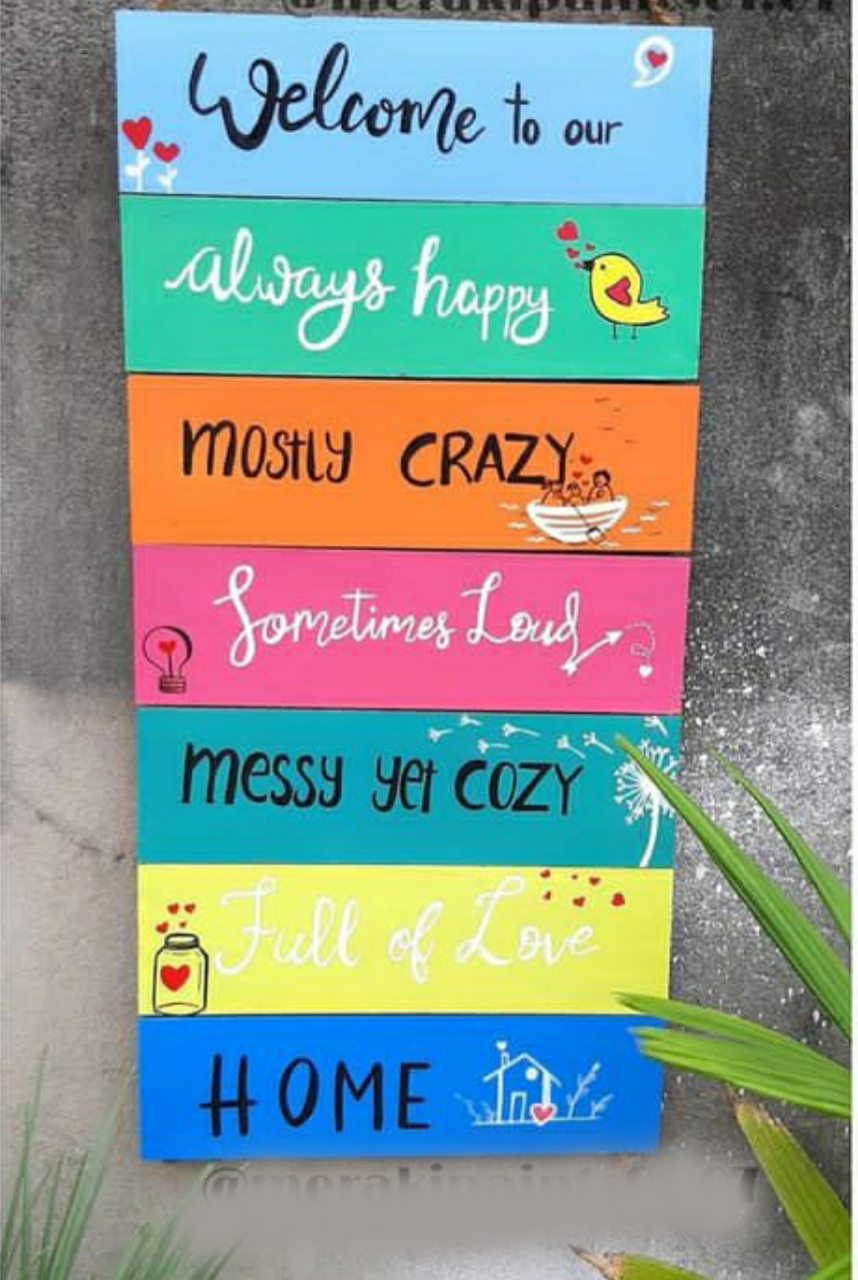 Welcome to our
always happy
mostly CRAZY
Sometimes Loud
messy yet COZY
Full of Love
HOME